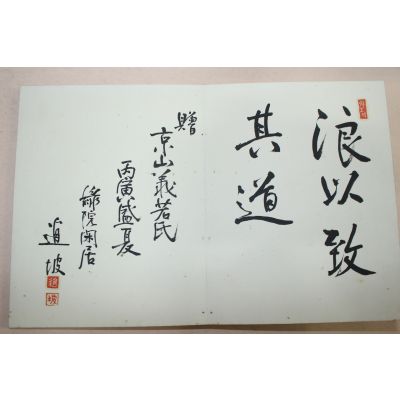 浪以致
其道
贈
京山義若氏
丙寅盛夏
院閑居
道坡